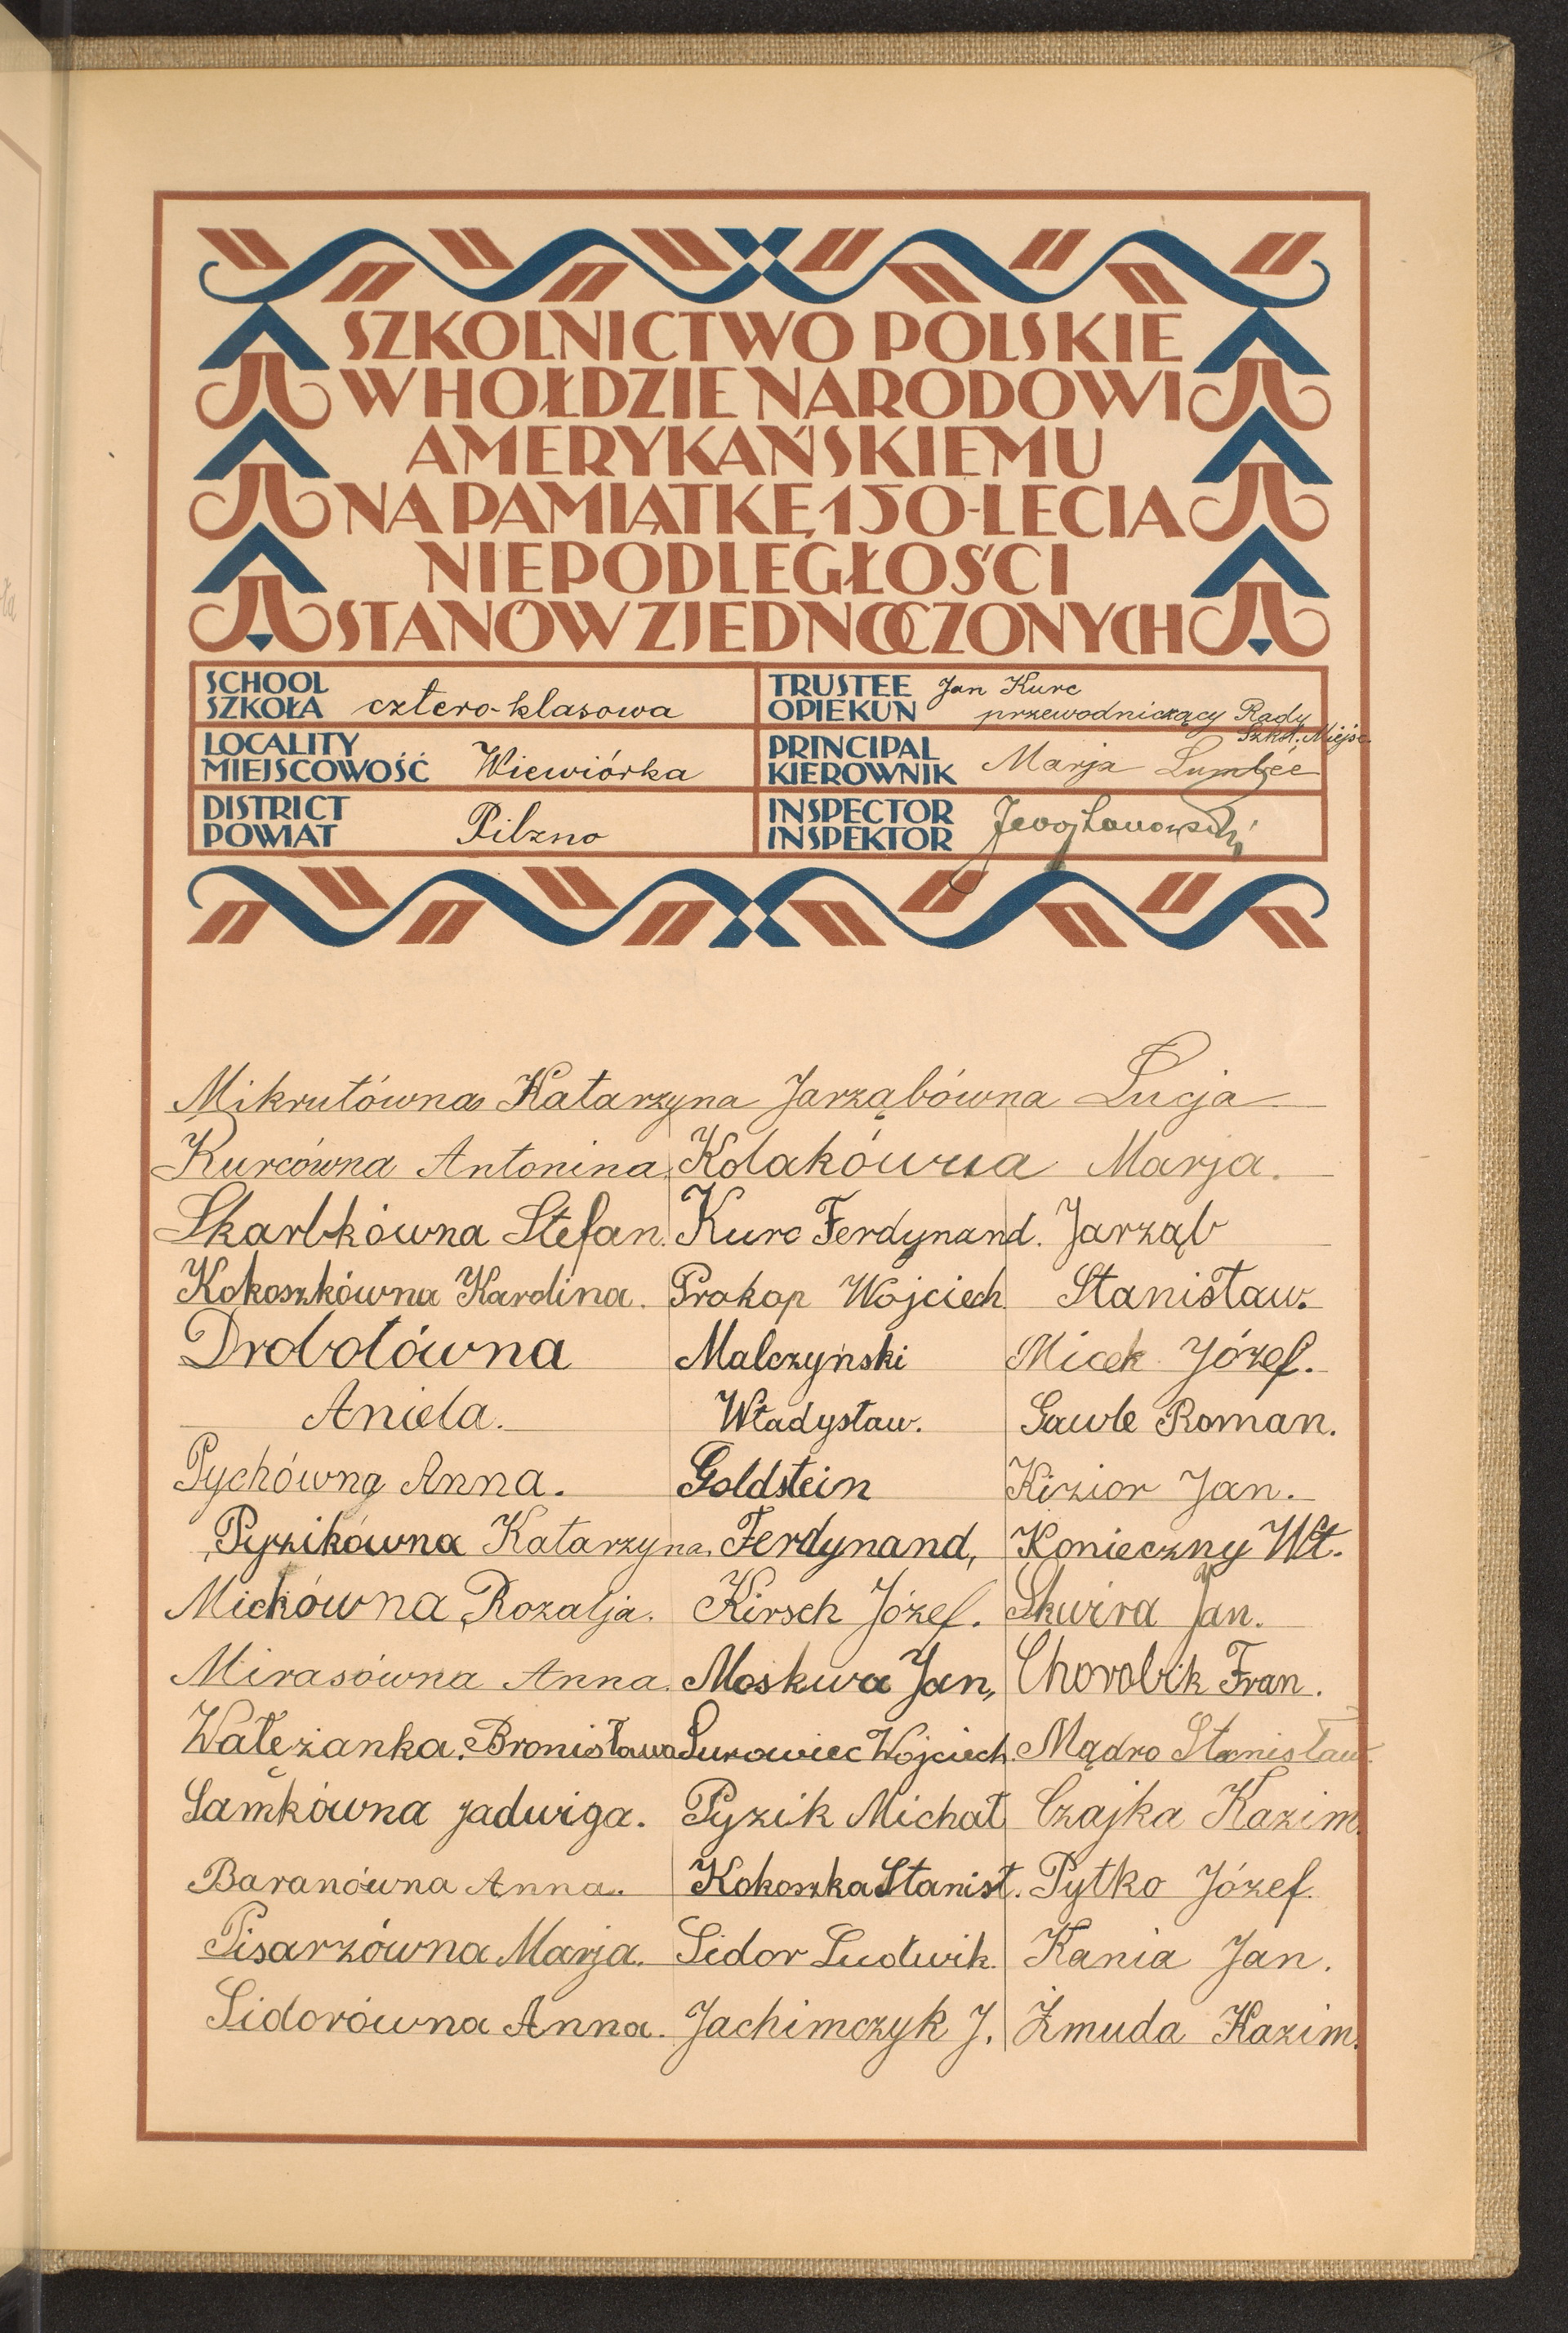 SZKOLNICTWO POLSKIE
W HOŁDZIE NARODOWI
AMERYKAŃSKIEMU
NA PAMIĄTKĘ 150-LECIA
NIEPODLEGŁOŚCI
STANÓW ZJEDNOCZONYCH
SCHOOL
SZKOŁA cztero-klasowa
TRUSTEE Jan Kurc
OPIEKUN przewodniczący Rady
Szkol. Miejsc.
LOCALITY
MIEJSCOWOŚĆ Wiewiórka
PRINCIPAL
KIEROWNIK Marja
DISTRICT
POWIAT Pilzno
INSPECTOR
INSPEKTOR
Mikrutówna Katarzyna Jarząbówna Łucja
Kurcówna Antonina. Kolakówna Marja.
Skarbkówna Stefan. Kurc Ferdynand. Jarząb
Kokoszkówna Karolina. Prokop Wojciech Stanisław.
Drobotówna Malczyński Micek Józef.
Aniela. Władysław. Gawle Roman.
Pychówna Anna. Goldstein Kizior Jan.
Pyzikówna Katarzyna. Ferdynand, Konieczny Wł.
Mickówna Rozalja. Kirsch Józef. Skwira Jan.
Mirasówna Anna. Moskwa Jan, Chorobik Fran.
Wałężanka Bronisława Surowiec Wojciech. Mądro Stanisław.
Samkówna Jadwiga. Pyzik Michał Czajka Kazim.
Baranówna Anna. Kokoszka Stanisł. Pytko Józef.
Pisarzówna Marja. Sidor Ludwik. Kania Jan.
Sidorówna Anna. Jachimczyk J. Żmuda Kazim.